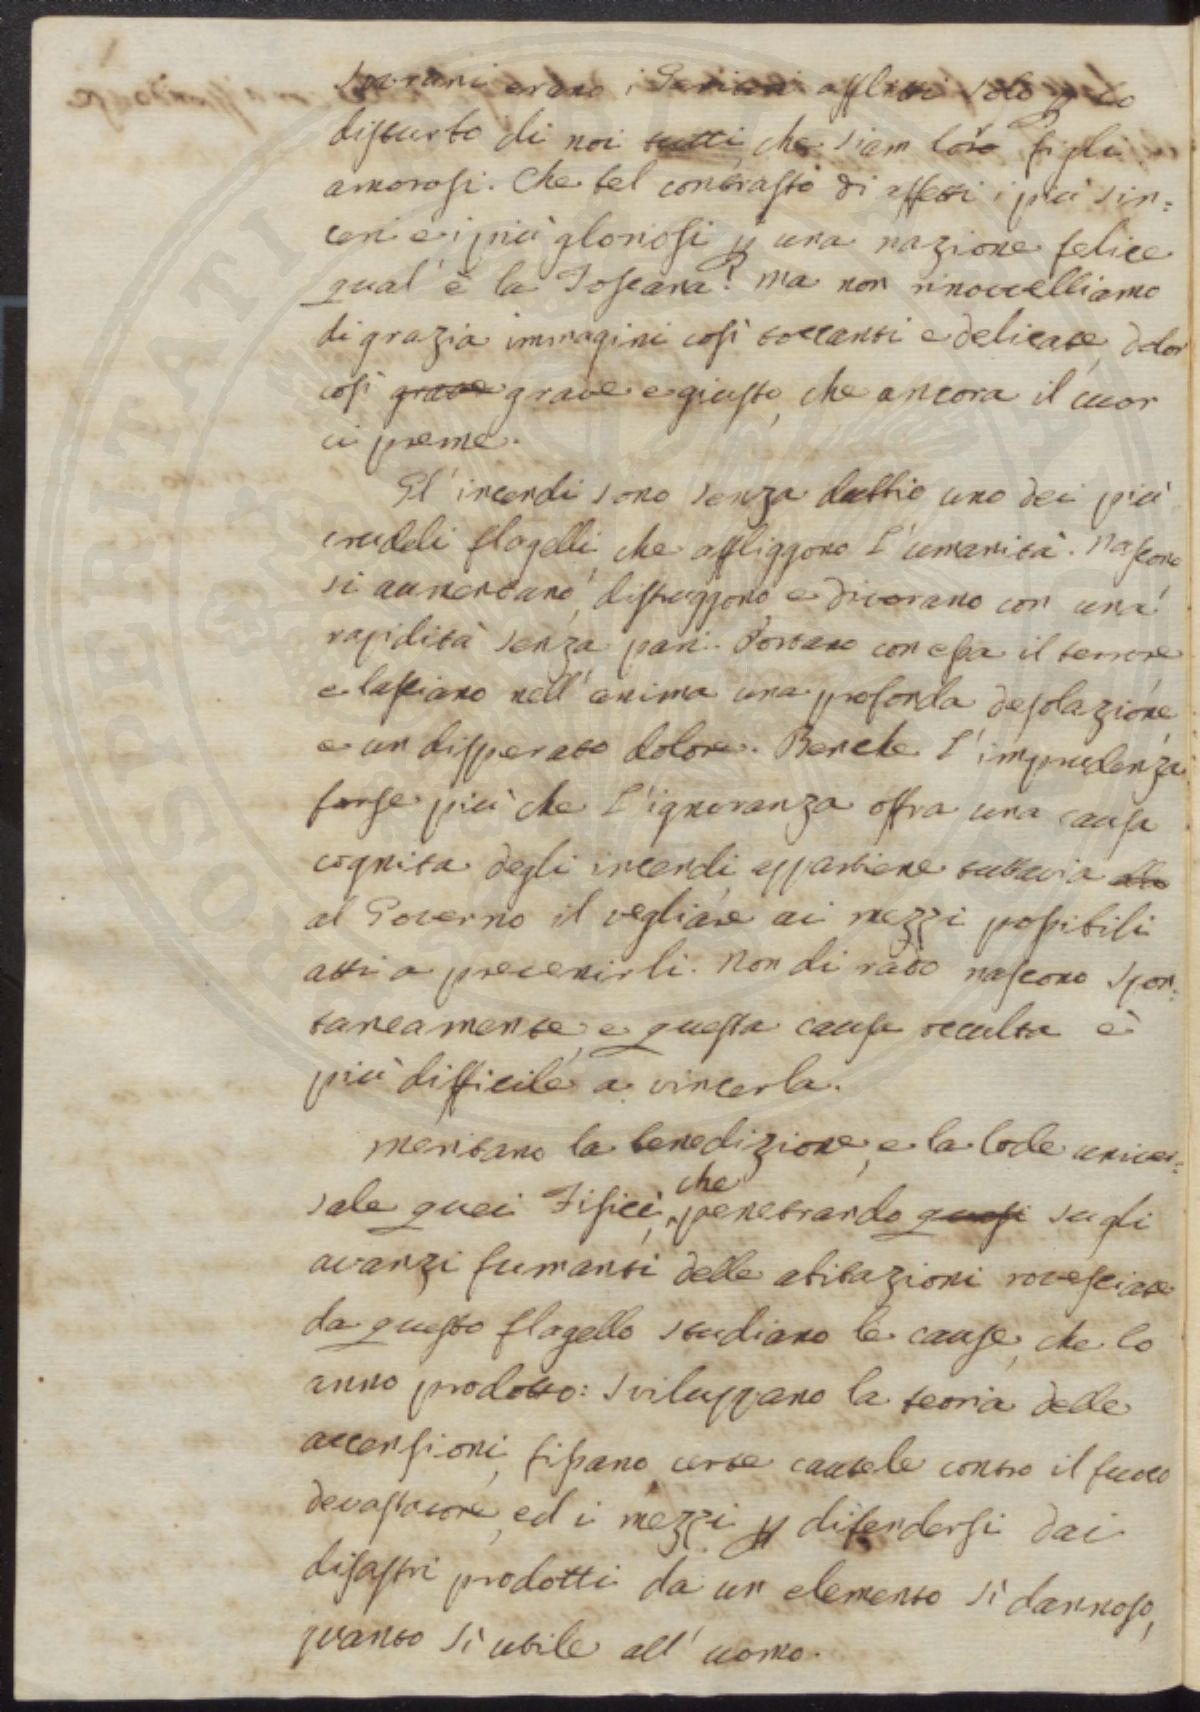 erano i afflitti solo p lo
disturbo di noi tutti, che siam loro figli
amorosi. Che bel contrasto di affetti i più sin=
ceri e i più gloriosi p una nazione felice
qual'è la Toscana! Ma non rinovelliamo
di grazia immagini così toccanti e delicate, dolor
così grave grave e giusto, che ancora il cuor
ci preme.
Gl'incendi sono senza dubbio uno dei più
crudeli flagelli, che affliggono l'umanità. Nascono
si aumentano, distruggono, e divorano con una
rapidità senza pari. Portano con essa il terrore
e lasciano nell'anima una profonda desolazione
e un disperato dolore. Benche l'imprudenza
forse più che l'ignoranza offra una causa
cognita degli incendi, appartiene tuttavia allo
al Governo il vegliare ai mezzi possibili
atti a prevenirli. Non di rado nascono spon=
taneamente, e questa causa occulta è
più difficile a vincerla.
Meritano la benedizione, e la lode univer=
sale quei Fisici, che penetrando quasi sugli
avanzi fumanti delle abitazioni rovesciate
da questo flagello studiano le cause, che lo
anno prodotto: sviluppano la teoria delle
accensioni, fissano certe cautele contro il fuoco
devastatore, ed i mezzi p difendersi dai
disastri prodotti da un elemento sì dannoso,
quanto sì utile all'uomo.
PROSPERITATI